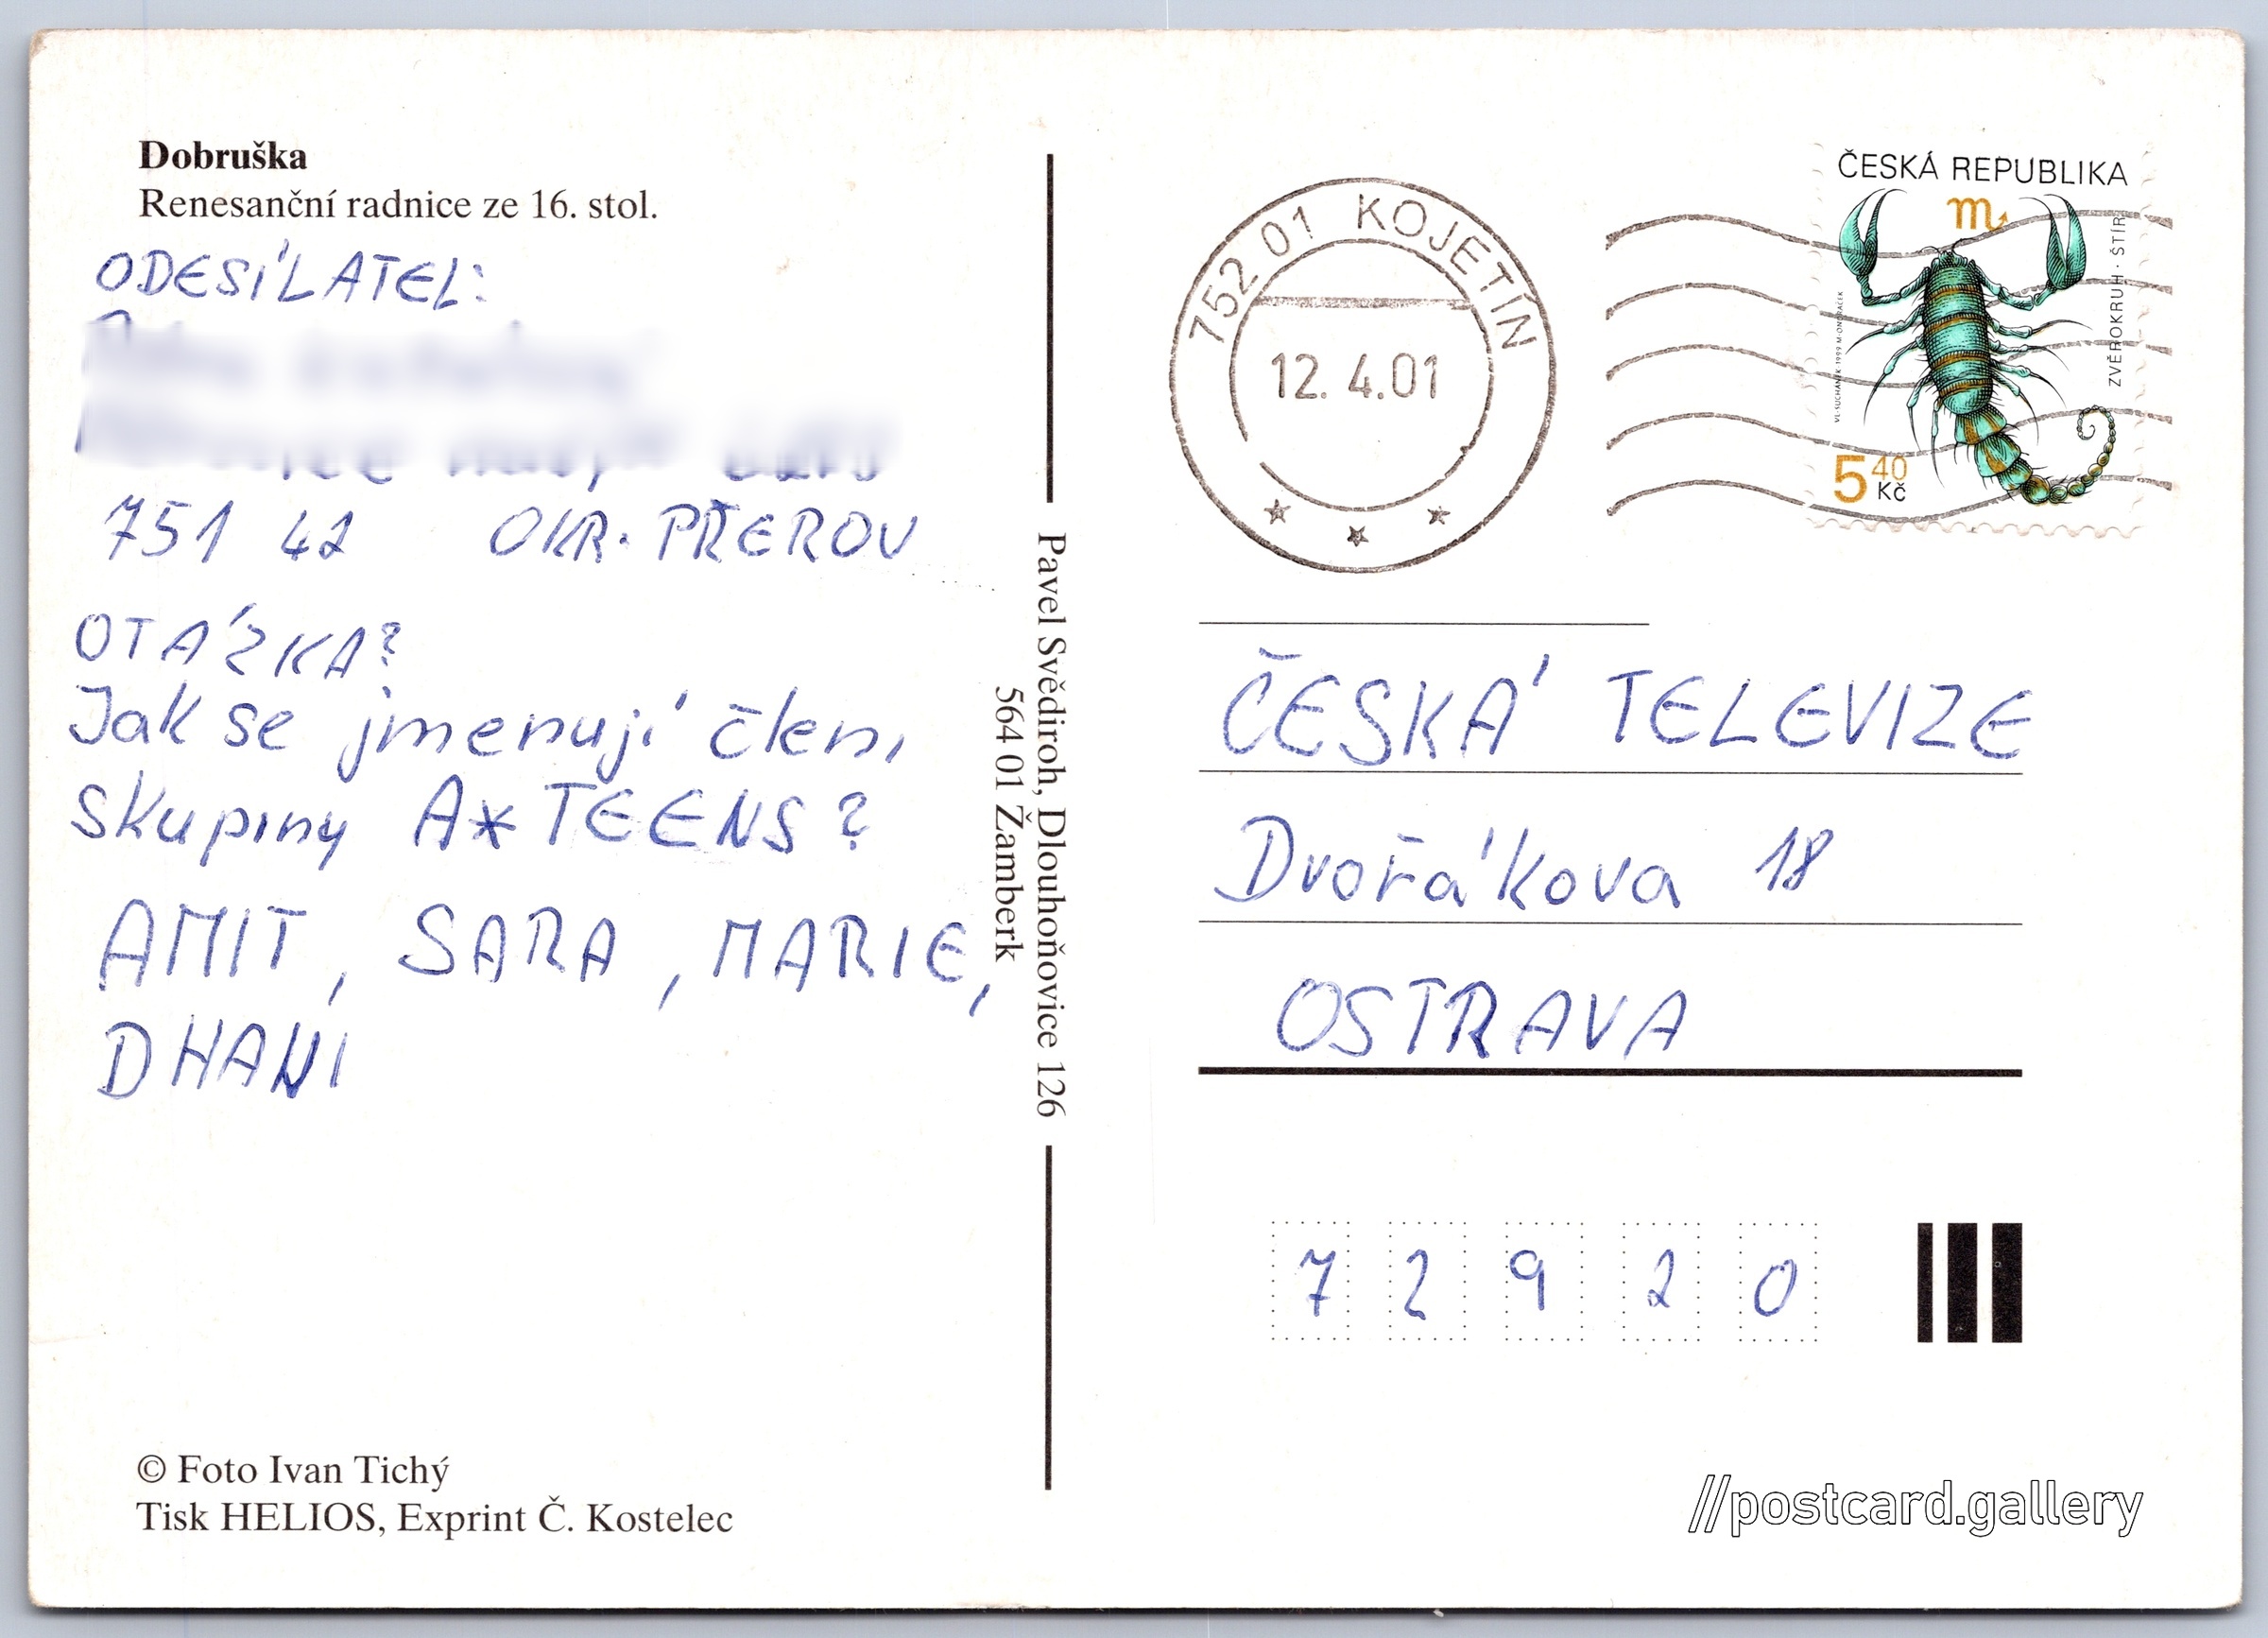 Dobruška
Renesanční radnice ze 16. stol.
ODESÍLATEL:
751 42 OKR. PŘEROV
OTÁZKA?
Jak se jmenují členi
skupiny A*TEENS?
AMIT, SARA, MARIE,
DHANI
© Foto Ivan Tichý
Tisk HELIOS, Exprint Č. Kostelec
Pavel Svědiroh, Dlouhoňovice 126
564 01 Žamberk
752 01 KOJETÍN
12. 4.01
ČESKÁ REPUBLIKA
ZVĚROKRUH · ŠTÍR
5 40 Kč
ČESKÁ TELEVIZE
Dvořákova 18
OSTRAVA
7 2 9 2 0
//postcard.gallery